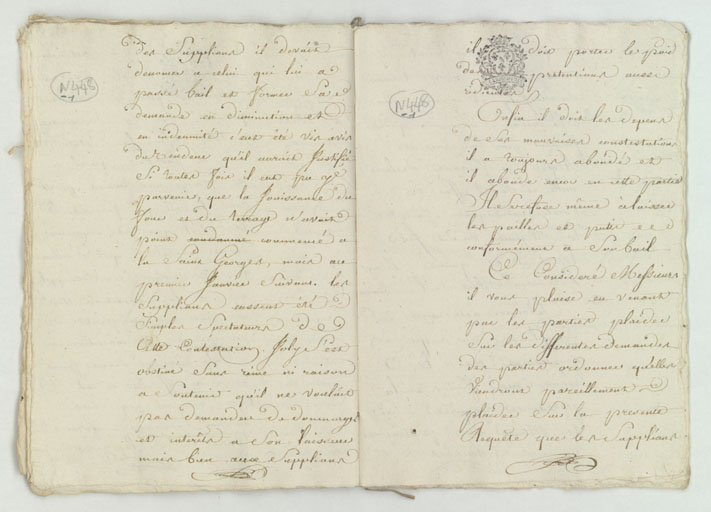 N448
des Supplians il devait
denoncer a celui qui lui a
passé bail et former Sa
demande en diminution et
en indemnité c'eut été vis avis
du vendeur qu'il auroit Justifié
Si toutes fois il eut pu y
parvenir, que la Jouissance du
four et du terrage n'avoit
point commencé a
la Saint Georges, mais au
premier Janvier Suivant. les
Supplians eussent été
Simples Spectateurs de
Cette Contestation, Joly S'est
obstiné Sans rime ni raison
a Soutenir qu'il ne vouloit
pas demander de dommages
et intérêts a Son bailleur
mais bien aux Supplians
N448
il doit porter le poid
de pretentions aussi
Enfin il doit les depens
de Ses mauvaises contestations
il a toujours abondé et
il abonde encor en cette partie
Il Se refuse même à laisser
les pailles et
conformément à Son bail
Ce Consideré Messieurs
il vous plaise en venant
par les parties plaider
Sur les differentes demandes
des parties ordonner qu'elles
Viendront pareillement
plaider Sur la presente
Requête que les Supplians